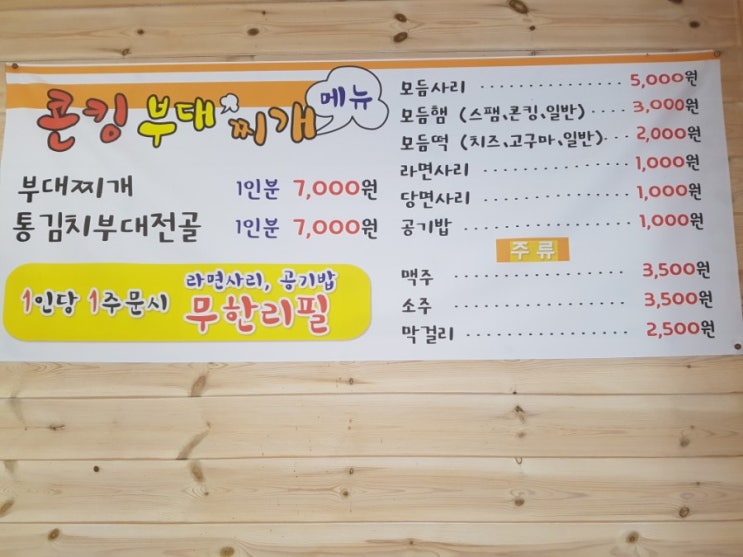 콘킹 부대찌개 메뉴
부대찌개 1인분 7,000원
통김치부대전골 1인분 7,000원
1인당 1주문시 라면사리, 공기밥
무한리필
모듬사리 5,000원
모듬햄 (스팸、콘킹、일반) 3,000원
모듬떡 (치즈、고구마、일반) 2,000원
라면사리 1,000원
당면사리 1,000원
공기밥 1,000원
주류
맥주 3,500원
소주 3,500원
막걸리 2,500원